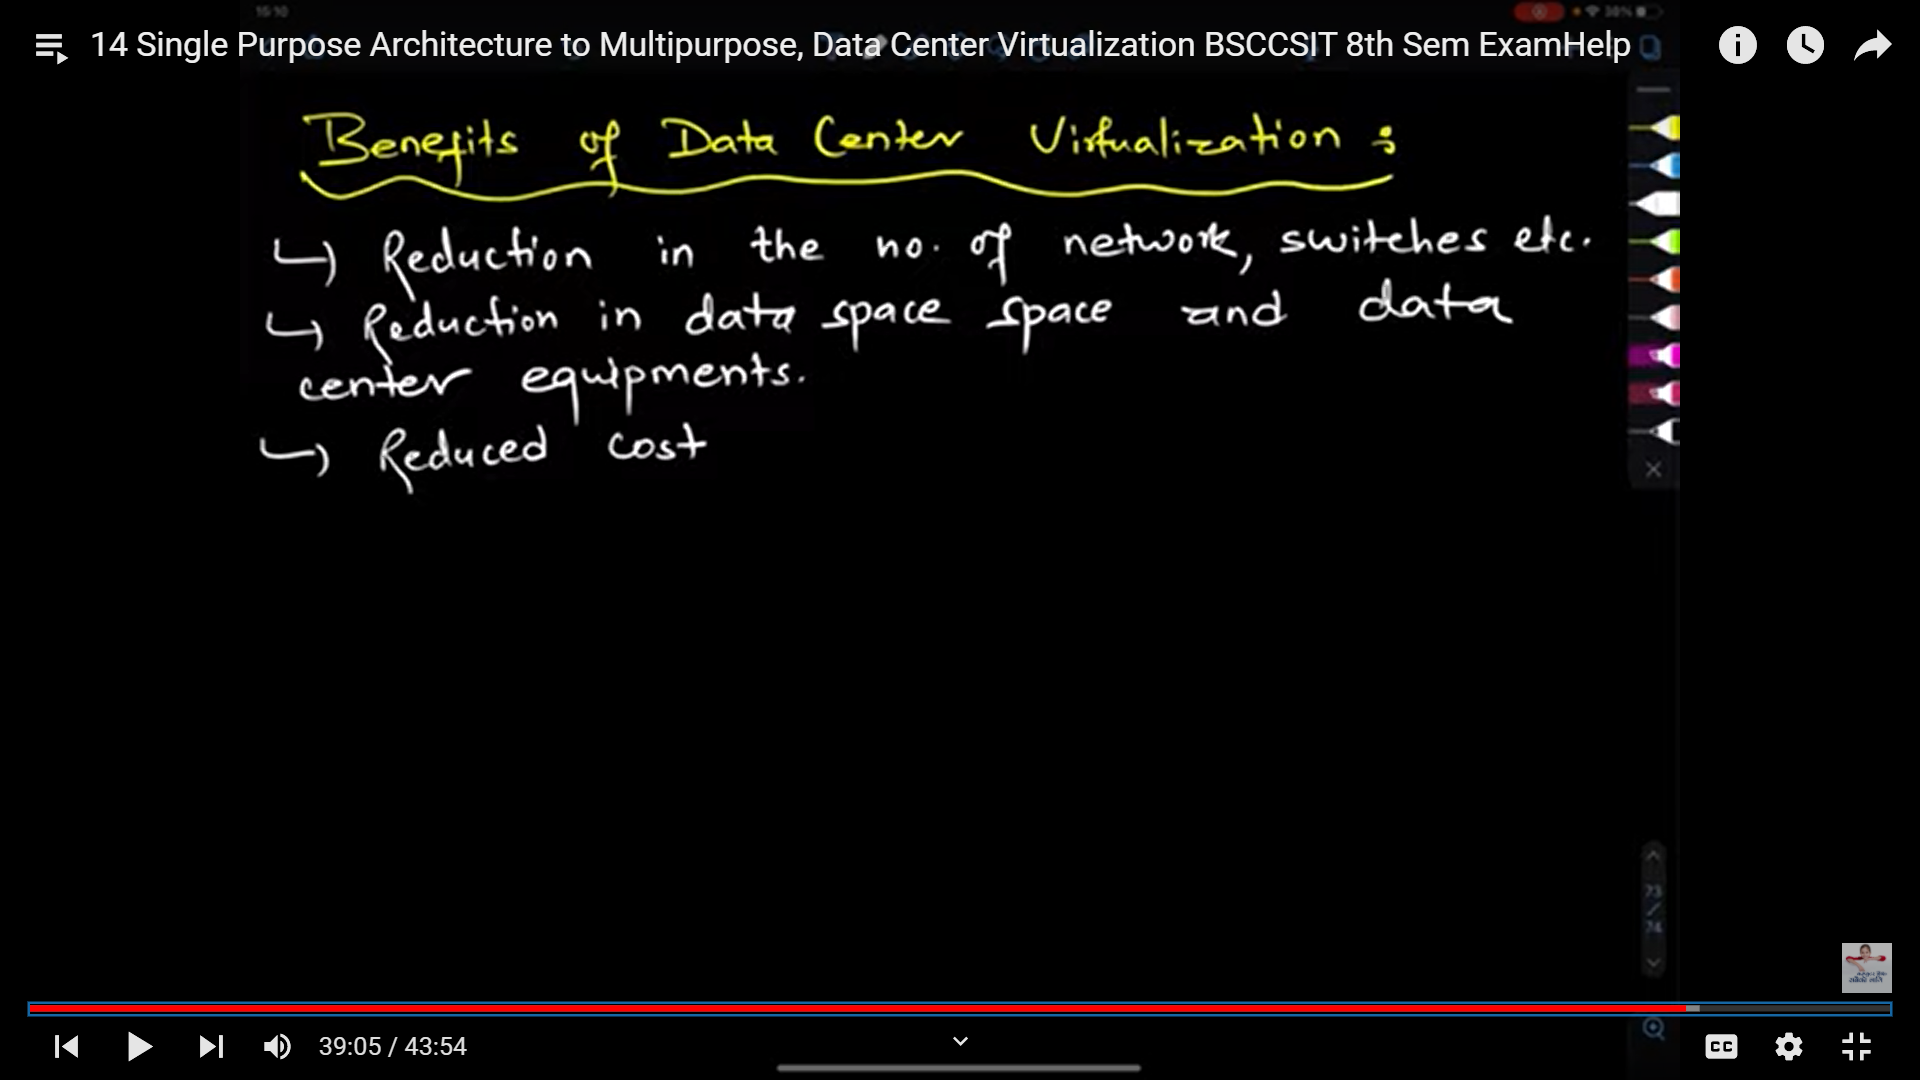 15:10
38%
14 Single Purpose Architecture to Multipurpose, Data Center Virtualization BSCCSIT 8th Sem ExamHelp
Benefits of Data Center Virtualization :
↳ Reduction in the no. of network, switches etc.
↳ Reduction in data space space and data
center equipments.
↳ Reduced cost
73
/
74
39:05 / 43:54
CC